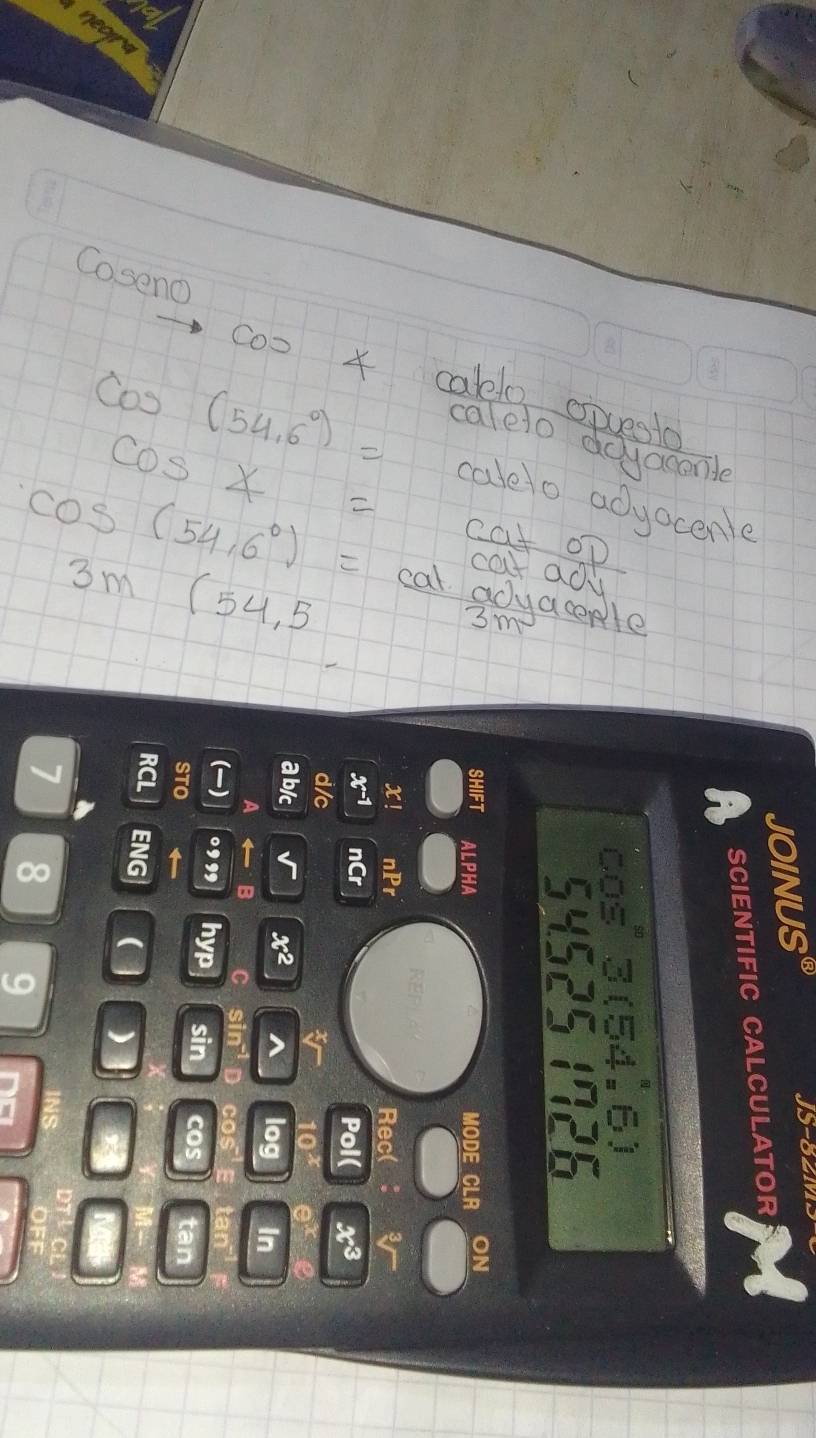 Coseno
→ cos x cateto opuesto
cateto adyacente
Cos (54,6°) = cateto adyacente
cos x = cat op
cat ady
cos (54,6°) = cat. adyacente
3m
3m (54,5
JOINUS®
SCIENTIFIC CALCULATOR
A M
cos 3(54.6)
54.5251726
SHIFT ALPHA REPLAY MODE CLR ON
x! nPr Rec( : ³√
x⁻¹ nCr Pol( x³
d/c ˣ√ 10ˣ eˣ e
ab/c √ x² ^ log ln
A ← B C sin⁻¹ D cos⁻¹ E tan⁻¹ F
(−) ° ' " hyp sin cos tan
STO ← X ; Y M- M
RCL ENG ( ) , M+
INS OFF
7 8 9 DEL